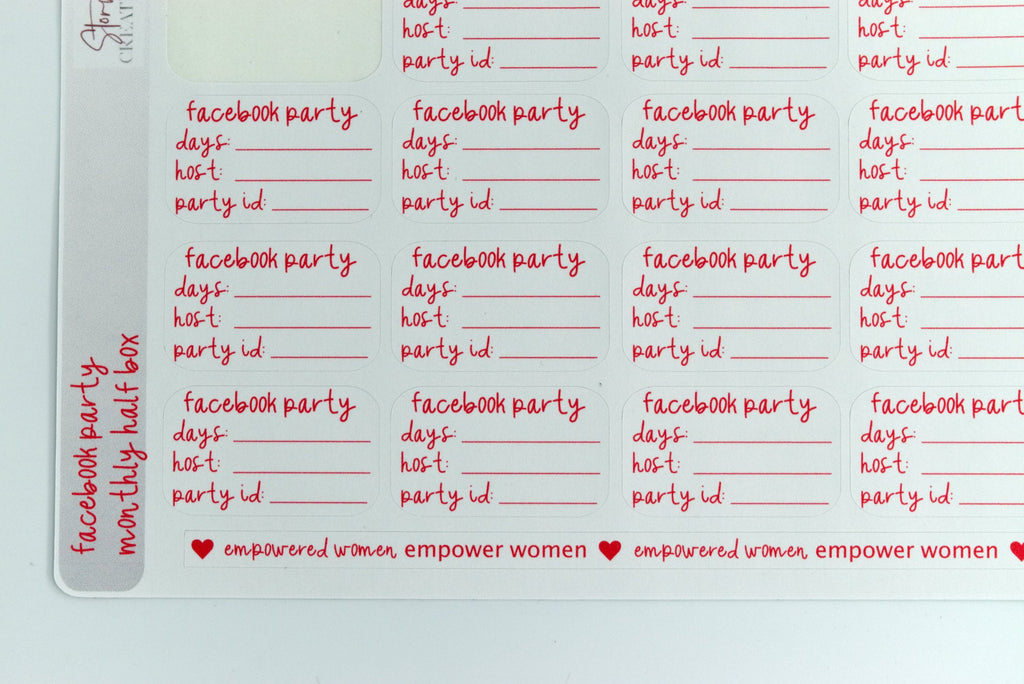 days:
host:
party id:
days:
host:
party id:
days:
host:
party id:
facebook party
days:
host:
party id:
facebook party
days:
host:
party id:
facebook party
days:
host:
party id:
facebook
days:
host:
party id:
facebook party
days:
host:
party id:
facebook party
days:
host:
party id:
facebook party
days:
host:
party id:
facebook
days:
host:
party id:
facebook party
days:
host:
party id:
facebook party
days:
host:
party id:
facebook party
days:
host:
party id:
facebook
days:
host:
party id:
facebook party
monthly half box
empowered women empower women ♥ empowered women empower women